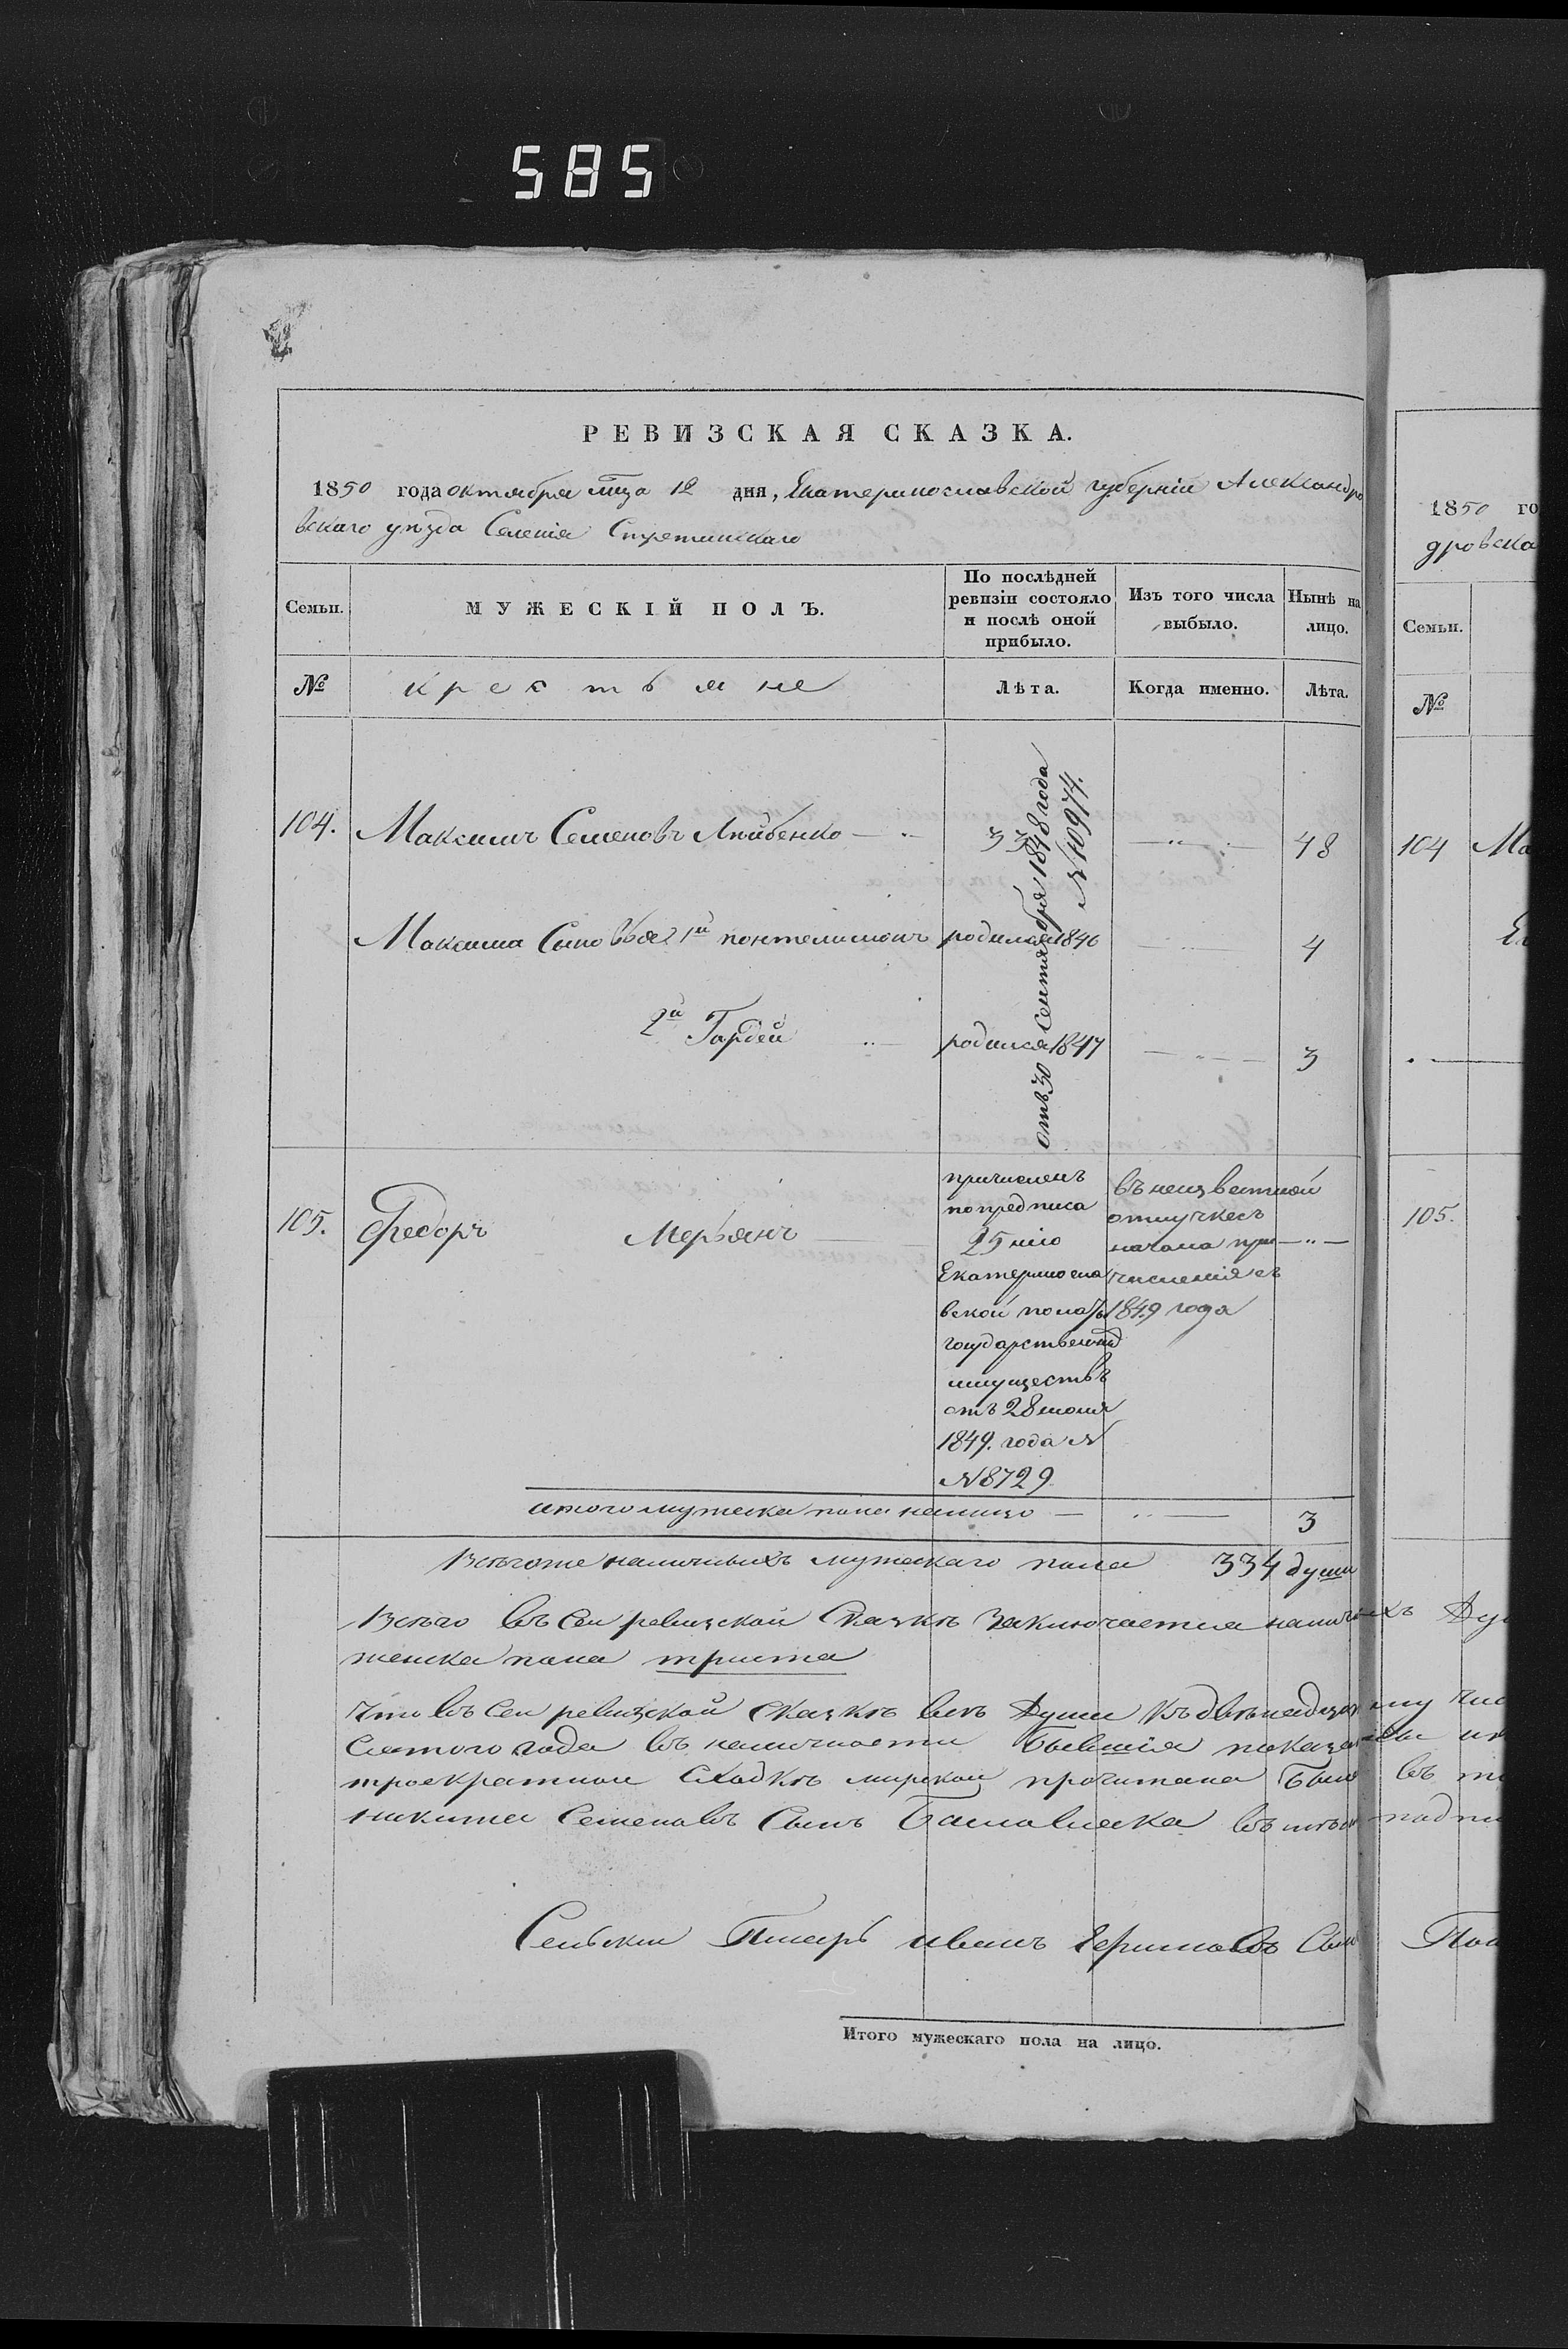 585
РЕВИЗСКАЯ СКАЗКА.
1850 года октября мца 12 дня, Екатеринославской губерніи Александро
вскаго уѣзда Селенія Стретинскаго
Семьи.
МУЖЕСКІЙ ПОЛЪ.
По послѣдней ревизіи состояло и послѣ оной прибыло.
Изъ того числа выбыло.
Нынѣ на лицо.
№
крестьяне
Лѣта.
Когда именно.
Лѣта.
104. Максимъ Семеновъ 33 48
Максима Сыновья 1й понтелимонъ родился 1846 4
2й Гордей родился 1847 3
отъ 30 Сентября 1848 года
№ 10974.
105. Федоръ Мерьянъ
причисленъ
по предписа
25 нію
Екатериносла
вской полаты
государственныхъ
имуществъ
отъ 28 июня
1849. года №
№ 8729
въ неизвестной
отлучкесъ
начала при
численія съ
1849 года
итого мужеска пола налицо 3
Всегоже наличныхъ мужескаго пола 334 души
Всего въ сей ревизской Сказкѣ Заключается наличныхъ Ду
женска пола триста
Что въ сей ревизской сказкѣ всѣ Души къ двѣнадца му чис
сятого года въ наличности бывшія показаны
троекратной Сходкѣ мирской прочитана была въ
никита Семеновъ Сынъ въ подпи
Сельский Писарь иванъ Сынъ Пол
Итого мужескаго пола на лицо.
1850 го
дровска
Семьи.
№
104 Ма
105.